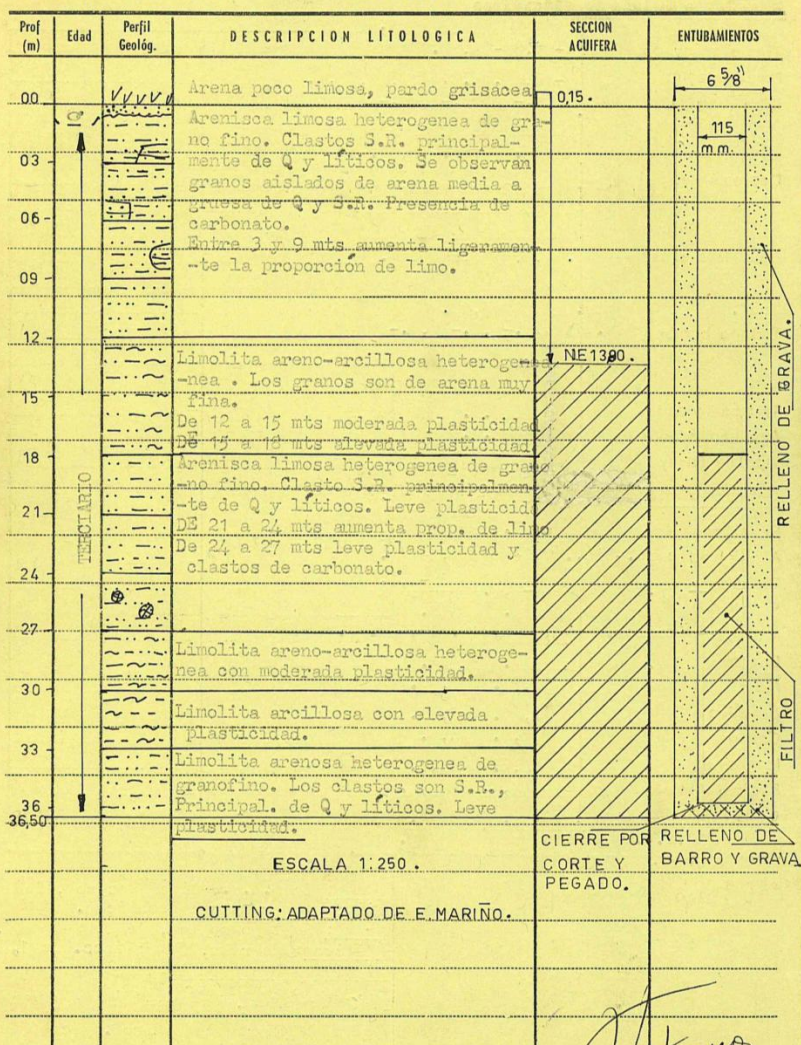 Prof (m)
Edad
Perfil Geológ.
DESCRIPCION LITOLOGICA
SECCION ACUIFERA
ENTUBAMIENTOS
6 5/8"
115
m.m.
00
03
06
09
12
15
18
21
24
27
30
33
36
36,50
Q
TERCIARIO
Arena poco limosa, pardo grisácea
Arenisca limosa heterogenea de gra-
no fino. Clastos S.R. principal-
mente de Q y líticos. Se observan
granos aislados de arena media a
gruesa de Q y S.R. Presencia de
carbonato.
Entre 3 y 9 mts aumenta ligeramen-
-te la proporción de limo.
Limolita areno-arcillosa heterogenea
-nea . Los granos son de arena muy
fina.
De 12 a 15 mts moderada plasticidad
DE 15 a 18 mts alevada plasticidad
Arenisca limosa heterogenea de grano
-no fino. Clasto S.R. principalmen-
-te de Q y líticos. Leve plasticid
DE 21 a 24 mts aumenta prop. de limo
De 24 a 27 mts leve plasticidad y
clastos de carbonato.
Limolita areno-arcillosa heteroge-
nea con moderada plasticidad.
Limolita arcillosa con elevada
plasticidad.
Limolita arenosa heterogenea de
granofino. Los clastos son S.R.,
Principal. de Q y líticos. Leve
plasticidad.
ESCALA 1:250.
CUTTING: ADAPTADO DE E. MARIÑO.
0,15.
N.E 13,90.
RELLENO DE GRAVA.
FILTRO
CIERRE POR
CORTE Y
PEGADO.
RELLENO DE
BARRO Y GRAVA